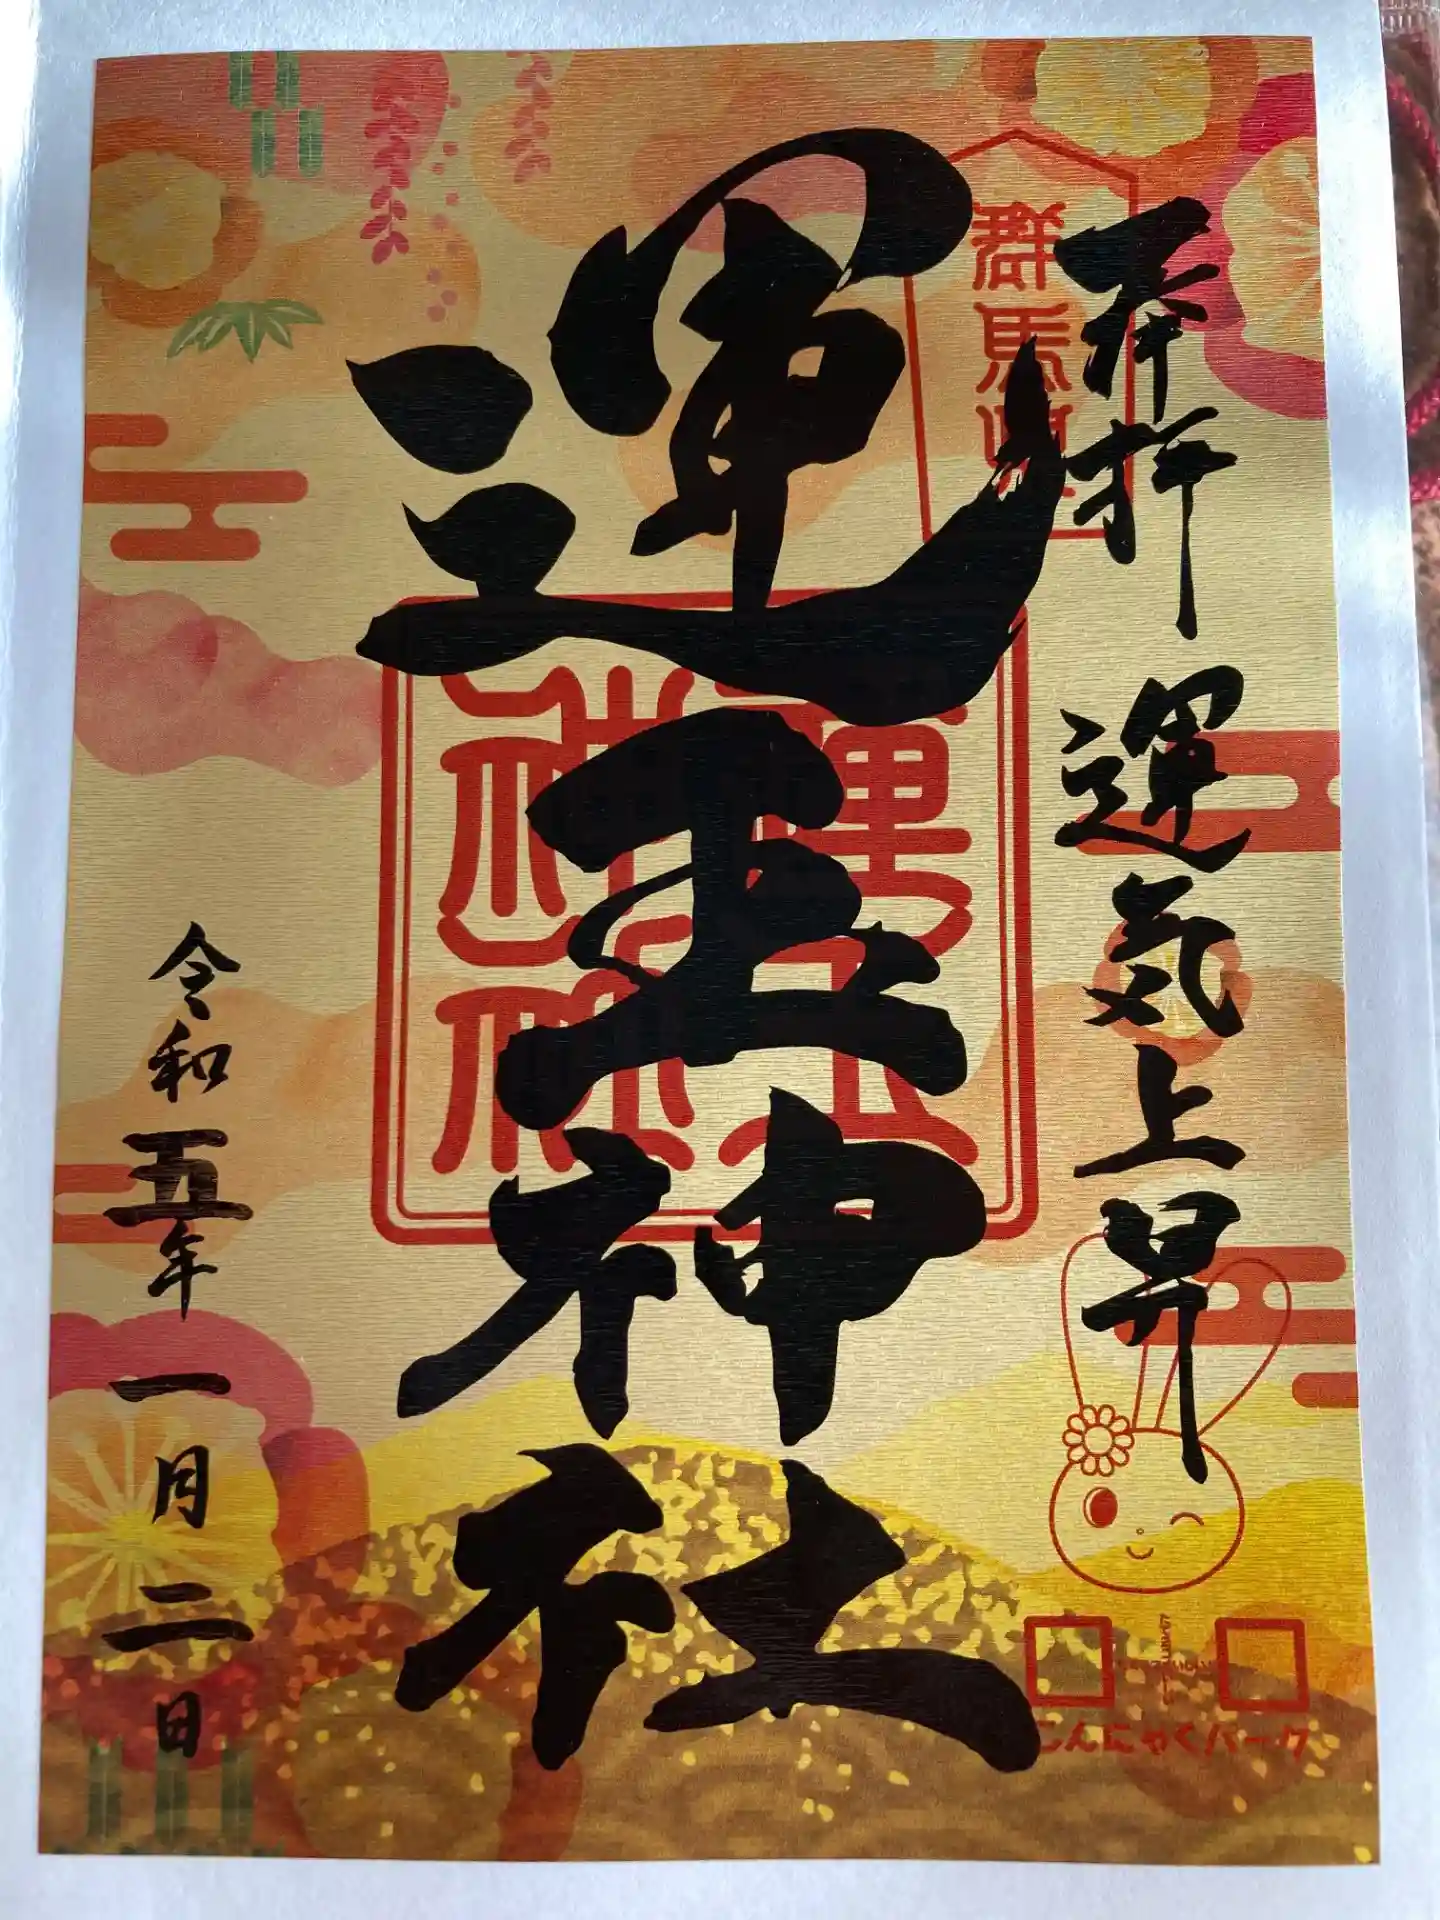 奉拝 運気上昇
群馬県
運玉神社
運玉神社
令和五年一月二日
こんにゃくパーク